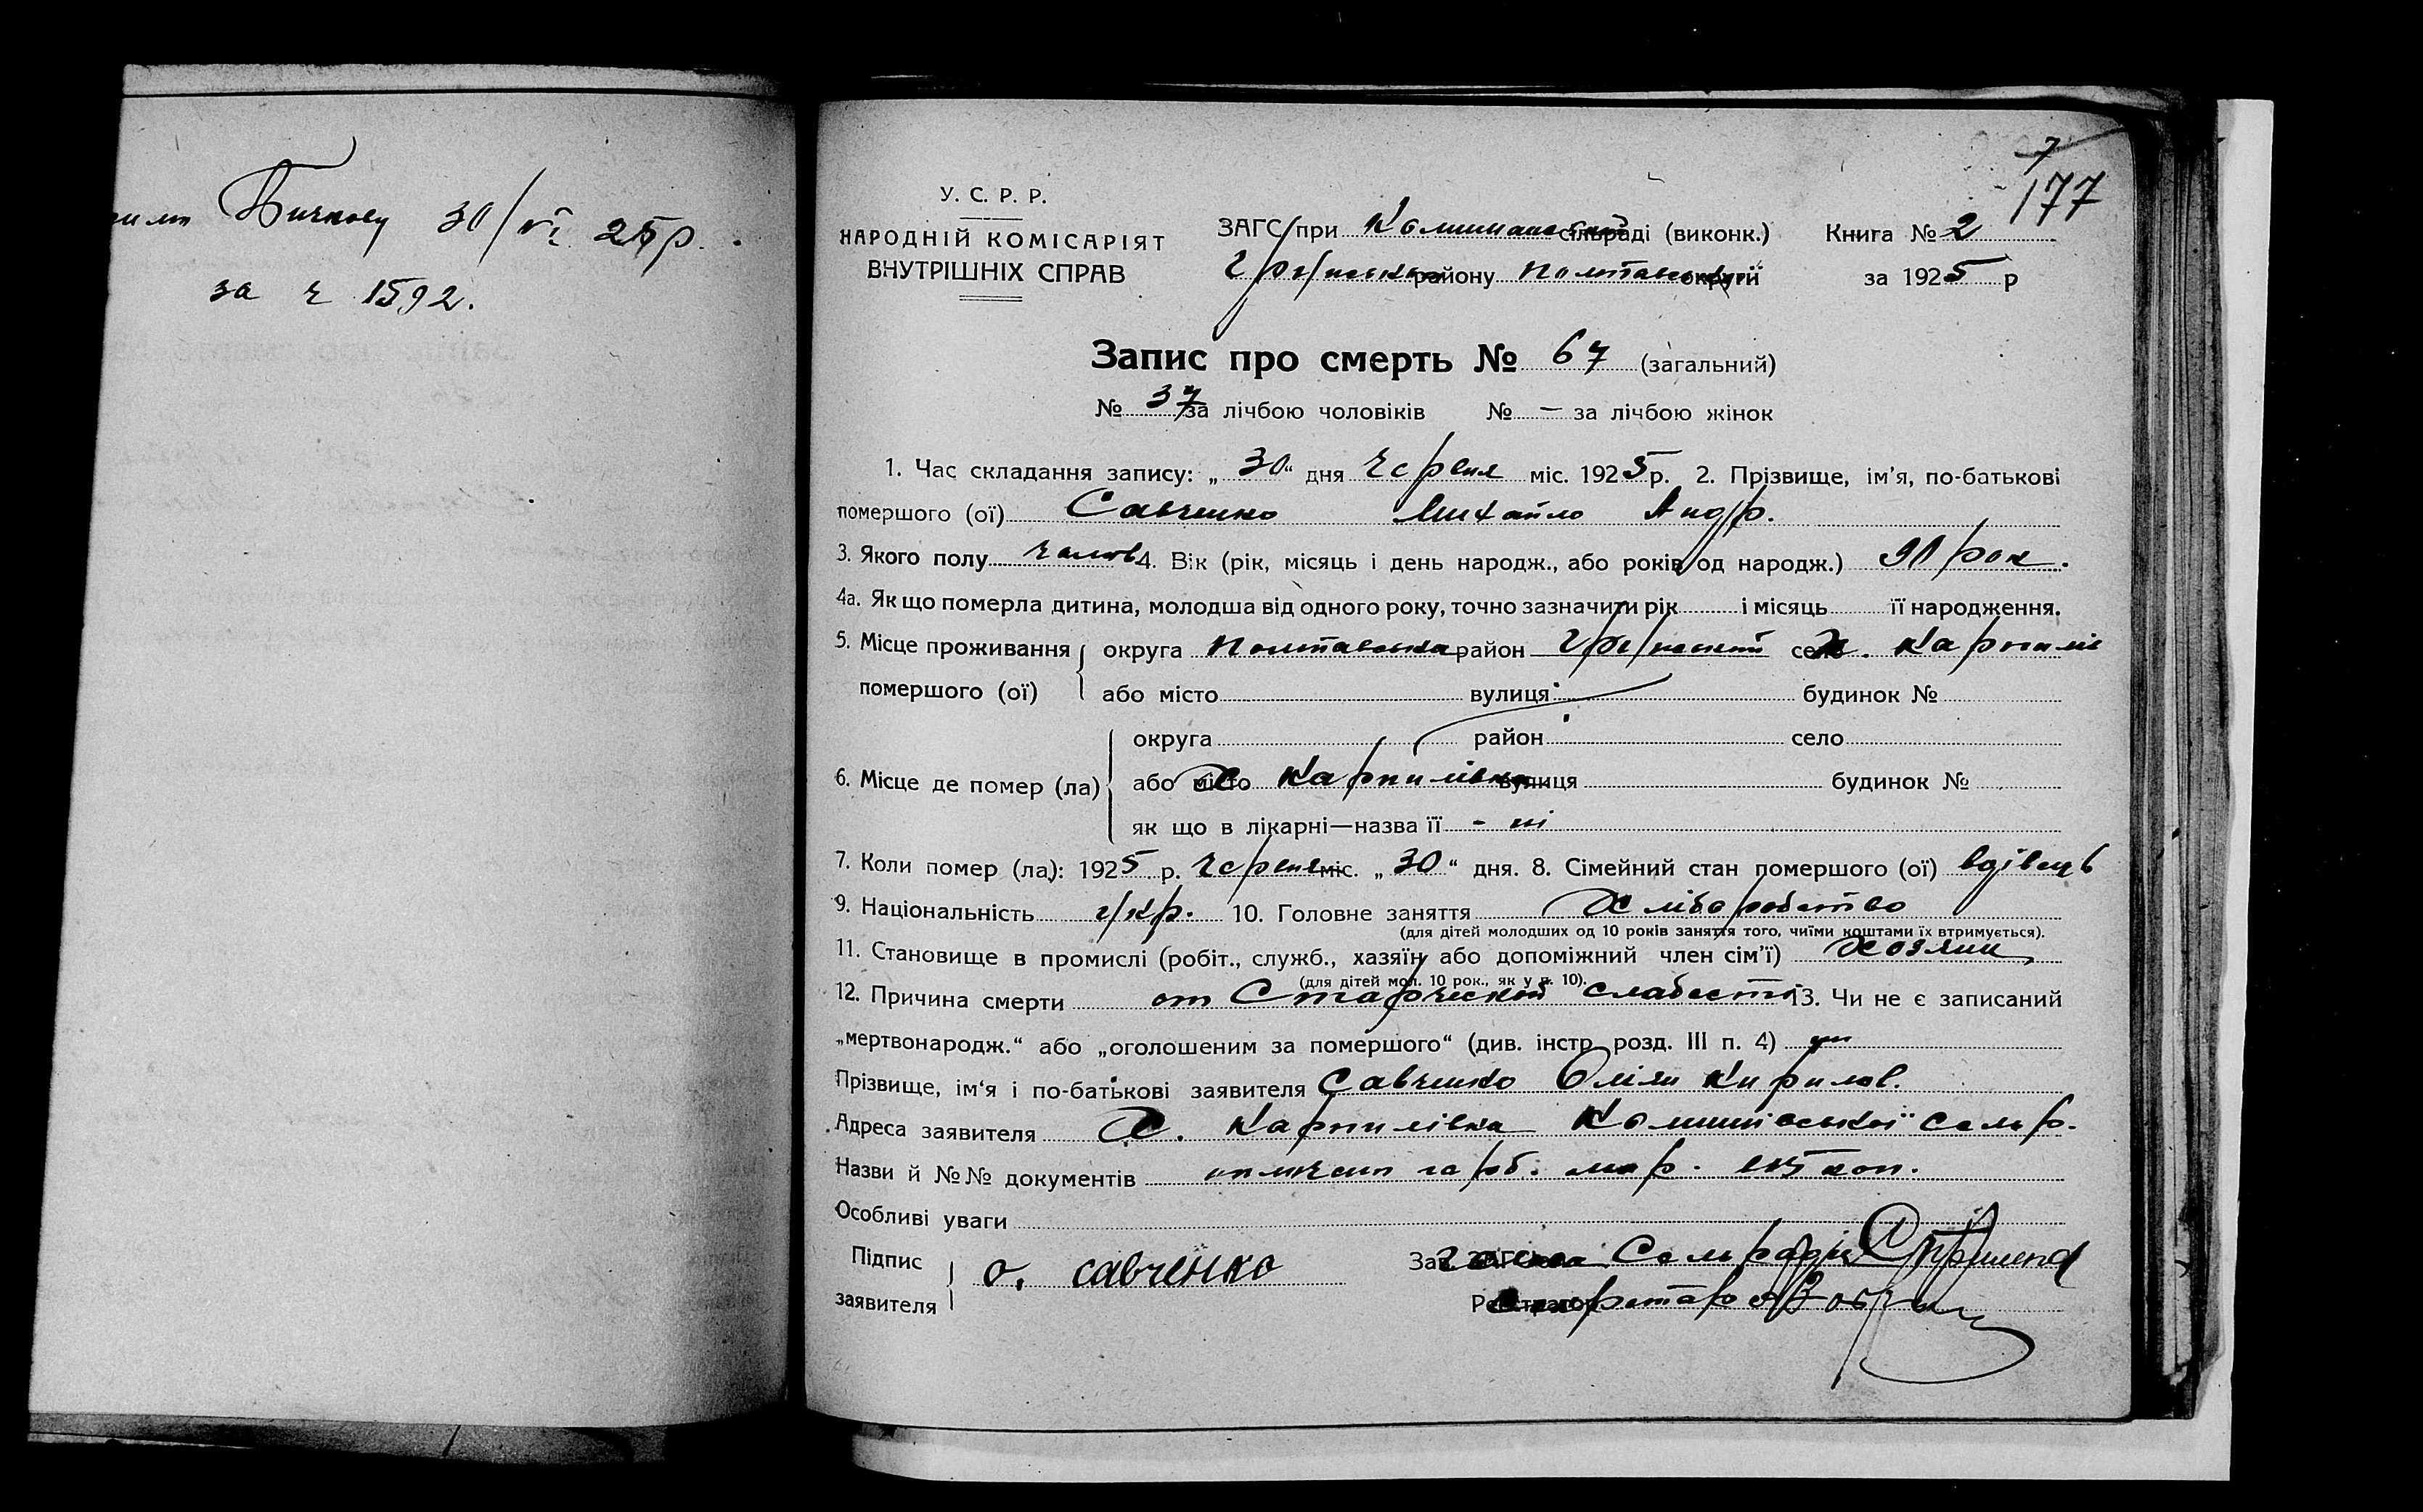 Бичкову 30/VI 25р.
за ч 1592.
7
177
У. С. Р. Р.
НАРОДНІЙ КОМІСАРІЯТ
ВНУТРІШНІХ СПРАВ
ЗАГС при сільраді (виконк.) Книга № 2
району Полтавської округи за 1925 р
Запис про смерть № 67 (загальний)
№ 37 за лічбою чоловіків № — за лічбою жінок
1. Час складання запису: „30“ дня Червня міс. 1925 р. 2. Прізвище, ім'я, по-батькові
помершого (ої) Савченко Михайло Андр.
3. Якого полу чолов 4. Вік (рік, місяць і день народж., або років од народж.) 90 рок.
4а. Як що померла дитина, молодша від одного року, точно зазначити рік і місяць її народження.
5. Місце проживання округа Полтавська район село х. Карпилів
помершого (ої) або місто вулиця будинок №
округа район село
6. Місце де помер (ла) або місто х Карпилівка вулиця будинок №
як що в лікарні—назва її - ні
7. Коли помер (ла): 1925 р. Червня міс. „30“ дня. 8. Сімейний стан помершого (ої) вдівець
9. Національність укр. 10. Головне заняття Хліборобство
(для дітей молодших од 10 років заняття того, чиїми коштами їх втримується).
11. Становище в промислі (робіт., служб., хазяїн або допоміжний член сім'ї) Хозяин
(для дітей мол. 10 рок., як у п. 10).
12. Причина смерти от Старческой слабости 13. Чи не є записаний
„мертвонародж.“ або „оголошеним за помершого“ (див. інстр. розд. III п. 4) ні
Прізвище, ім'я і по-батькові заявителя Савченко Оліян Кирилов.
Адреса заявителя Х. Карпилівка Сельр.
Назви й №№ документів гарб. мар. коп.
Особливі уваги
Підпис
заявителя о. савченко
Зав. ЗАГС'ом Голова Сельради
Реєстратор Секретарь